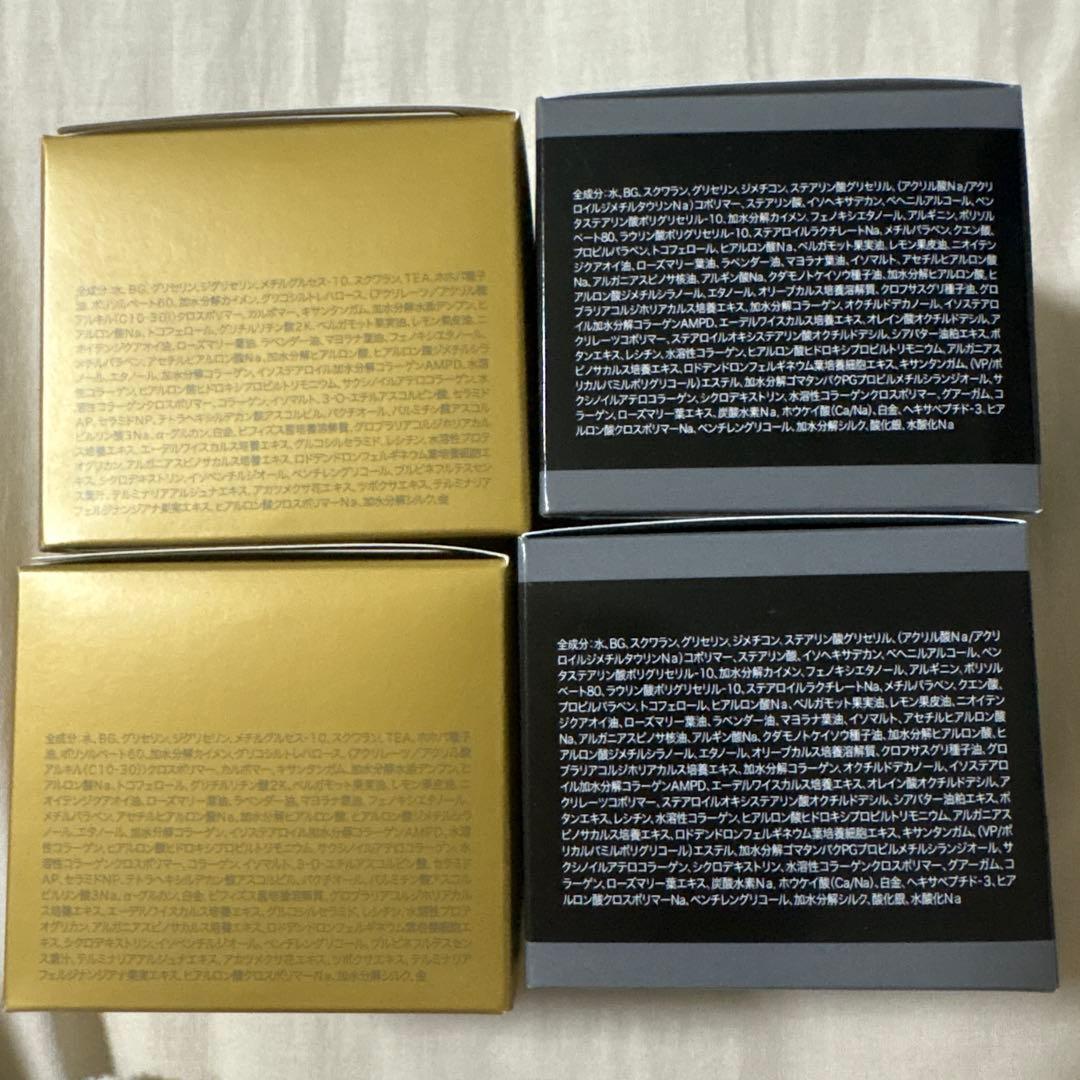 全成分:水、BG、グリセリン、ジグリセリン、メチルグルセス-10、スクワラン、TEA、ホホバ種子
油、ポリソルベート60、加水分解カイメン、グリコシルトレハロース、(アクリレーツ/アクリル酸
アルキル(C10-30))クロスポリマー、カルボマー、キサンタンガム、加水分解水添デンプン、ヒ
アルロン酸Na、トコフェロール、グリチルリチン酸2K、ベルガモット果実油、レモン果皮油、ニ
オイテンジクアオイ油、ローズマリー葉油、ラベンダー油、マヨラナ葉油、フェノキシエタノール、
メチルパラベン、アセチルヒアルロン酸Na、加水分解ヒアルロン酸、ヒアルロン酸ジメチルシラ
ノール、エタノール、加水分解コラーゲン、イソステアロイル加水分解コラーゲンAMPD、水溶
性コラーゲン、ヒアルロン酸ヒドロキシプロピルトリモニウム、サクシノイルアテロコラーゲン、水
溶性コラーゲンクロスポリマー、コラーゲン、イソマルト、3-O-エチルアスコルビン酸、セラミド
AP、セラミドNP、テトラヘキシルデカン酸アスコルビル、バクチオール、パルミチン酸アスコル
ビルリン酸3Na、α-グルカン、白金、ビフィズス菌培養溶解質、グロブラリアコルジホリアカル
ス培養エキス、エーデルワイスカルス培養エキス、グルコシルセラミド、レシチン、水溶性プロテ
オグリカン、アルガニアスピノサカルス培養エキス、ロドデンドロンフェルギネウム葉培養細胞エ
キス、シクロデキストリン、イソペンチルジオール、ペンチレングリコール、ブルビネフルテスセン
ス葉汁、テルミナリアアルジュナエキス、アカツメクサ花エキス、ツボクサエキス、テルミナリア
フェルジナンジアナ果実エキス、ヒアルロン酸クロスポリマーNa、加水分解シルク、金
全成分:水、BG、スクワラン、グリセリン、ジメチコン、ステアリン酸グリセリル、(アクリル酸Na/アクリ
ロイルジメチルタウリンNa)コポリマー、ステアリン酸、イソヘキサデカン、ベヘニルアルコール、ペン
タステアリン酸ポリグリセリル-10、加水分解カイメン、フェノキシエタノール、アルギニン、ポリソル
ベート80、ラウリン酸ポリグリセリル-10、ステアロイルラクチレートNa、メチルパラベン、クエン酸、
プロピルパラベン、トコフェロール、ヒアルロン酸Na、ベルガモット果実油、レモン果皮油、ニオイテン
ジクアオイ油、ローズマリー葉油、ラベンダー油、マヨラナ葉油、イソマルト、アセチルヒアルロン酸
Na、アルガニアスピノサ核油、アルギン酸Na、クダモノトケイソウ種子油、加水分解ヒアルロン酸、ヒ
アルロン酸ジメチルシラノール、エタノール、オリーブカルス培養溶解質、クロフサスグリ種子油、グロ
ブラリアコルジホリアカルス培養エキス、加水分解コラーゲン、オクチルドデカノール、イソステアロ
イル加水分解コラーゲンAMPD、エーデルワイスカルス培養エキス、オレイン酸オクチルドデシル、ア
クリレーツコポリマー、ステアロイルオキシステアリン酸オクチルドデシル、シアバター油粕エキス、ボ
タンエキス、レシチン、水溶性コラーゲン、ヒアルロン酸ヒドロキシプロピルトリモニウム、アルガニアス
ピノサカルス培養エキス、ロドデンドロンフェルギネウム葉培養細胞エキス、キサンタンガム、(VP/ポ
リカルバミルポリグリコール)エステル、加水分解ゴマタンパクPGプロピルメチルシランジオール、サ
クシノイルアテロコラーゲン、シクロデキストリン、水溶性コラーゲンクロスポリマー、グアーガム、コ
ラーゲン、ローズマリー葉エキス、炭酸水素Na、ホウケイ酸(Ca/Na)、白金、ヘキサペプチド-3、ヒ
アルロン酸クロスポリマーNa、ペンチレングリコール、加水分解シルク、酸化銀、水酸化Na
全成分:水、BG、グリセリン、ジグリセリン、メチルグルセス-10、スクワラン、TEA、ホホバ種子
油、ポリソルベート60、加水分解カイメン、グリコシルトレハロース、(アクリレーツ/アクリル酸
アルキル(C10-30))クロスポリマー、カルボマー、キサンタンガム、加水分解水添デンプン、ヒ
アルロン酸Na、トコフェロール、グリチルリチン酸2K、ベルガモット果実油、レモン果皮油、ニ
オイテンジクアオイ油、ローズマリー葉油、ラベンダー油、マヨラナ葉油、フェノキシエタノール、
メチルパラベン、アセチルヒアルロン酸Na、加水分解ヒアルロン酸、ヒアルロン酸ジメチルシラ
ノール、エタノール、加水分解コラーゲン、イソステアロイル加水分解コラーゲンAMPD、水溶
性コラーゲン、ヒアルロン酸ヒドロキシプロピルトリモニウム、サクシノイルアテロコラーゲン、水
溶性コラーゲンクロスポリマー、コラーゲン、イソマルト、3-O-エチルアスコルビン酸、セラミド
AP、セラミドNP、テトラヘキシルデカン酸アスコルビル、バクチオール、パルミチン酸アスコル
ビルリン酸3Na、α-グルカン、白金、ビフィズス菌培養溶解質、グロブラリアコルジホリアカル
ス培養エキス、エーデルワイスカルス培養エキス、グルコシルセラミド、レシチン、水溶性プロテ
オグリカン、アルガニアスピノサカルス培養エキス、ロドデンドロンフェルギネウム葉培養細胞エ
キス、シクロデキストリン、イソペンチルジオール、ペンチレングリコール、ブルビネフルテスセン
ス葉汁、テルミナリアアルジュナエキス、アカツメクサ花エキス、ツボクサエキス、テルミナリア
フェルジナンジアナ果実エキス、ヒアルロン酸クロスポリマーNa、加水分解シルク、金
全成分:水、BG、スクワラン、グリセリン、ジメチコン、ステアリン酸グリセリル、(アクリル酸Na/アクリ
ロイルジメチルタウリンNa)コポリマー、ステアリン酸、イソヘキサデカン、ベヘニルアルコール、ペン
タステアリン酸ポリグリセリル-10、加水分解カイメン、フェノキシエタノール、アルギニン、ポリソル
ベート80、ラウリン酸ポリグリセリル-10、ステアロイルラクチレートNa、メチルパラベン、クエン酸、
プロピルパラベン、トコフェロール、ヒアルロン酸Na、ベルガモット果実油、レモン果皮油、ニオイテン
ジクアオイ油、ローズマリー葉油、ラベンダー油、マヨラナ葉油、イソマルト、アセチルヒアルロン酸
Na、アルガニアスピノサ核油、アルギン酸Na、クダモノトケイソウ種子油、加水分解ヒアルロン酸、ヒ
アルロン酸ジメチルシラノール、エタノール、オリーブカルス培養溶解質、クロフサスグリ種子油、グロ
ブラリアコルジホリアカルス培養エキス、加水分解コラーゲン、オクチルドデカノール、イソステアロ
イル加水分解コラーゲンAMPD、エーデルワイスカルス培養エキス、オレイン酸オクチルドデシル、ア
クリレーツコポリマー、ステアロイルオキシステアリン酸オクチルドデシル、シアバター油粕エキス、ボ
タンエキス、レシチン、水溶性コラーゲン、ヒアルロン酸ヒドロキシプロピルトリモニウム、アルガニアス
ピノサカルス培養エキス、ロドデンドロンフェルギネウム葉培養細胞エキス、キサンタンガム、(VP/ポ
リカルバミルポリグリコール)エステル、加水分解ゴマタンパクPGプロピルメチルシランジオール、サ
クシノイルアテロコラーゲン、シクロデキストリン、水溶性コラーゲンクロスポリマー、グアーガム、コ
ラーゲン、ローズマリー葉エキス、炭酸水素Na、ホウケイ酸(Ca/Na)、白金、ヘキサペプチド-3、ヒア
ルロン酸クロスポリマーNa、ペンチレングリコール、加水分解シルク、酸化銀、水酸化Na